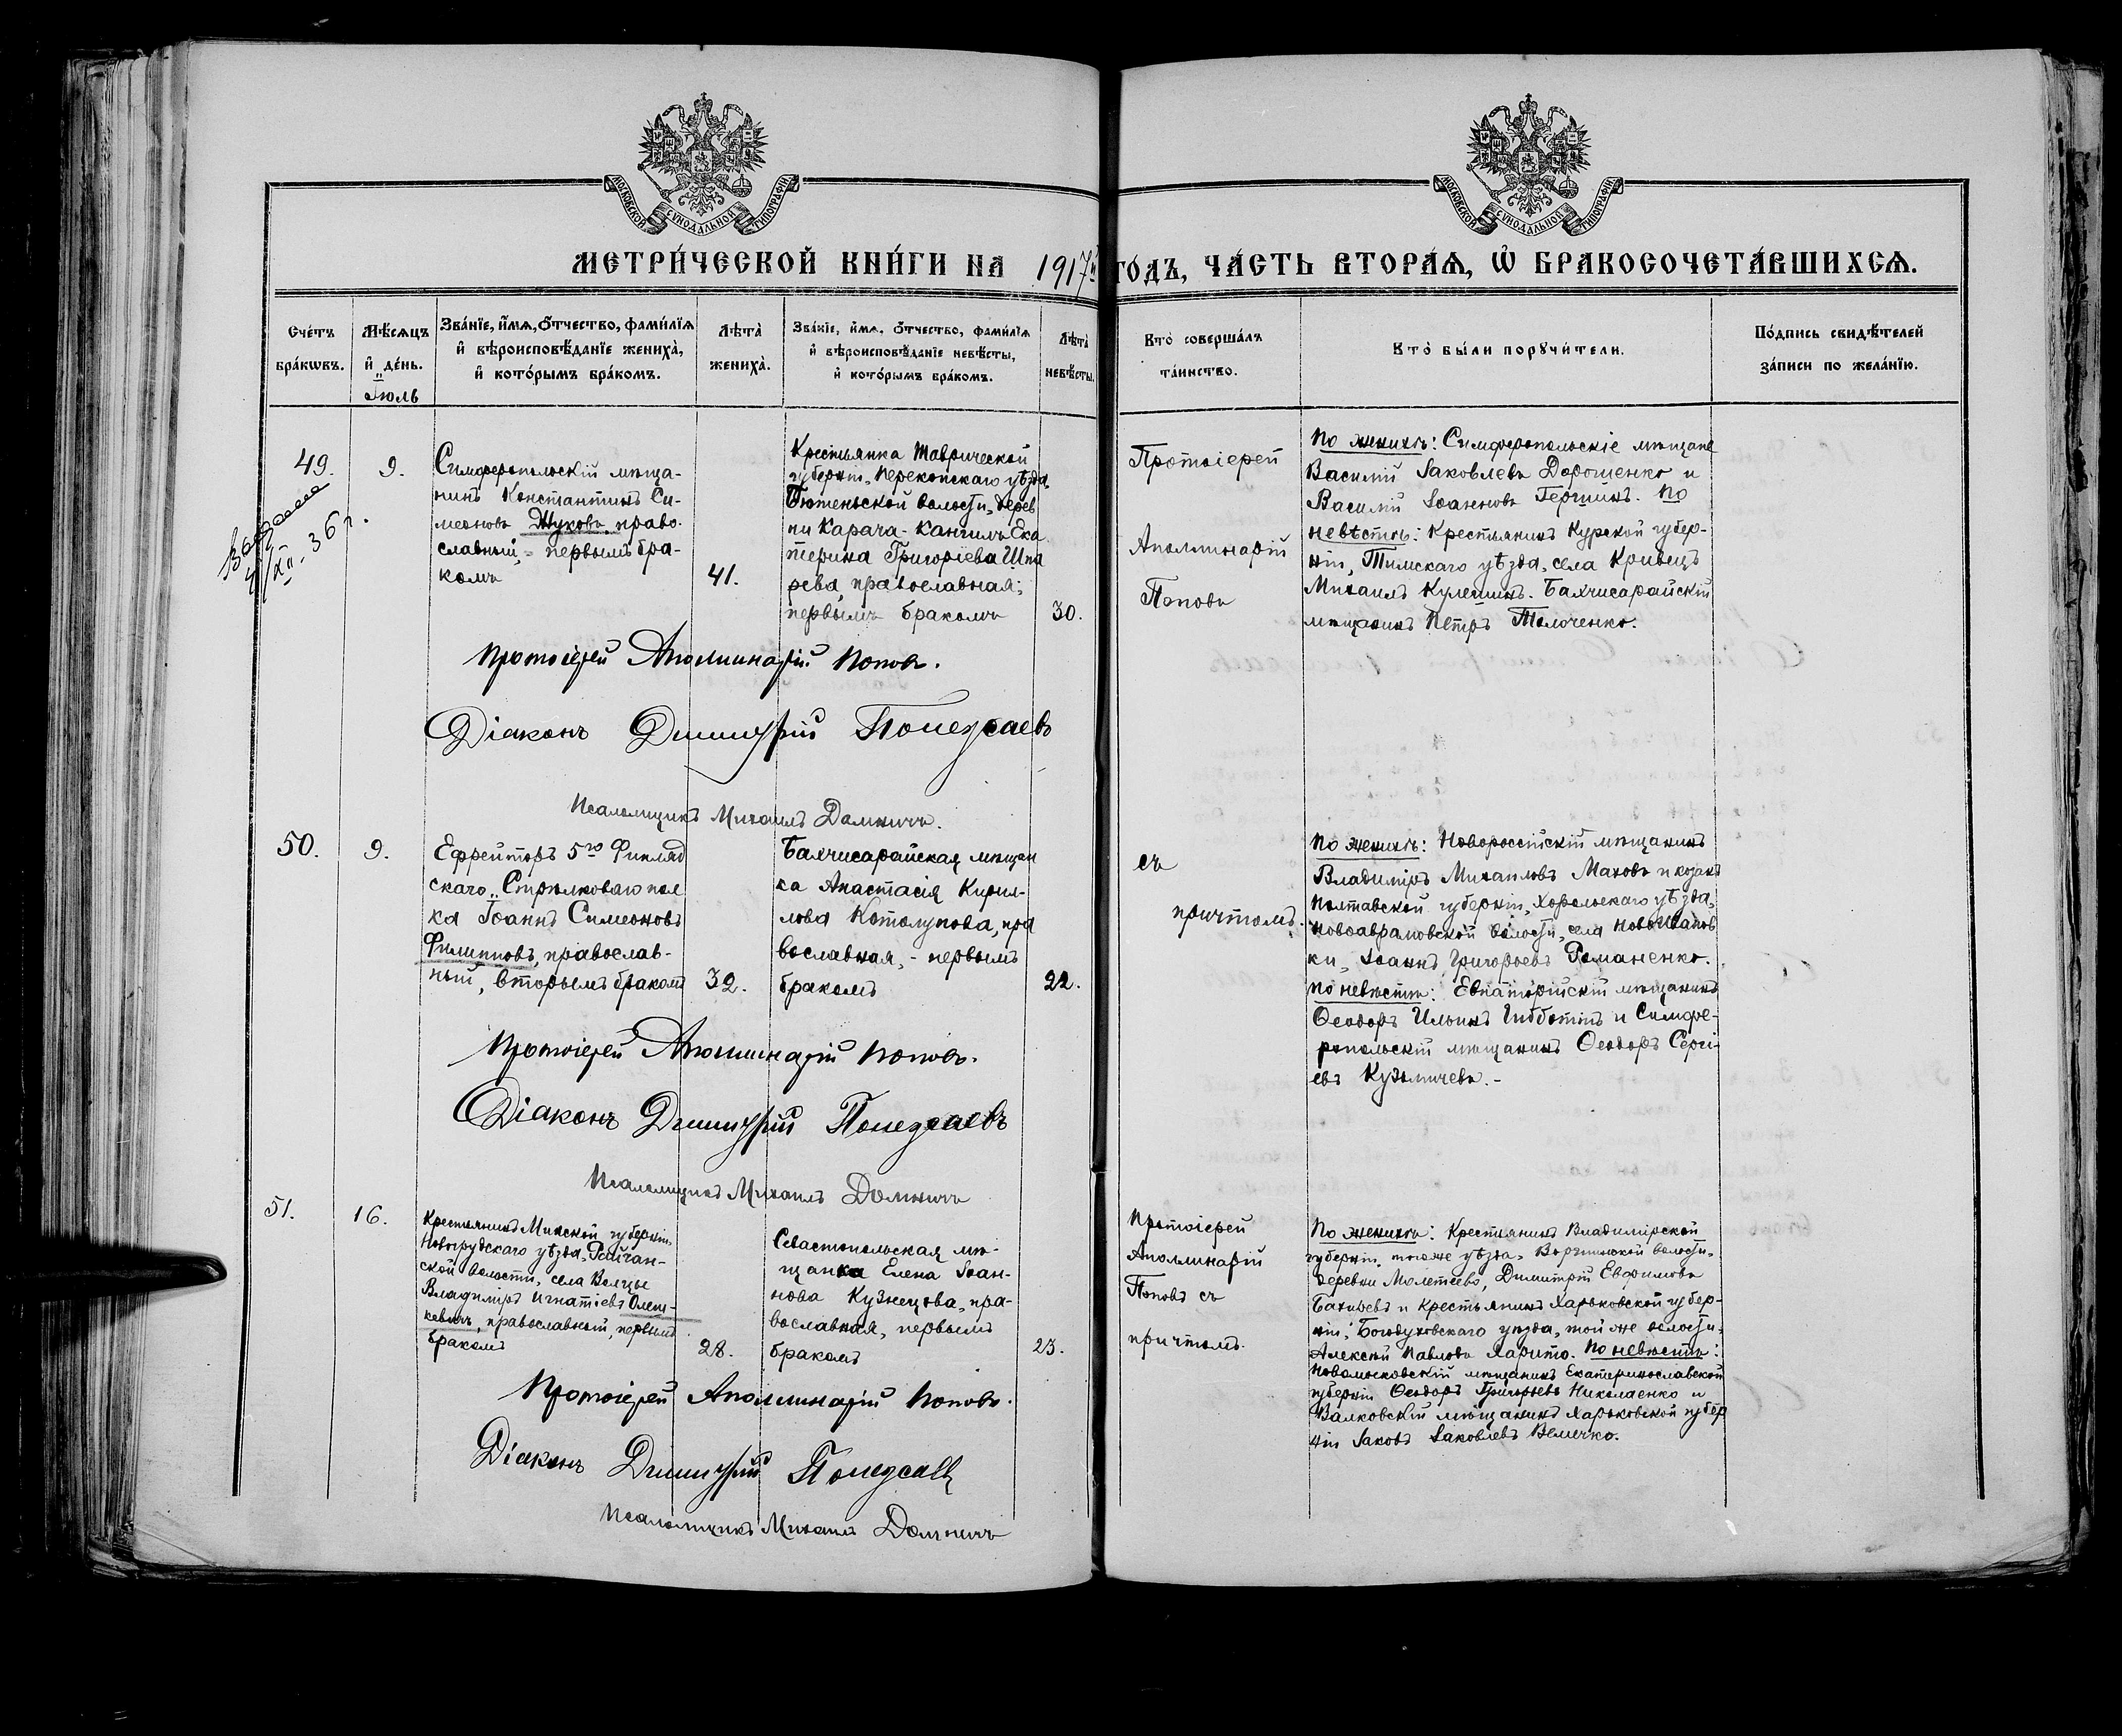 МОСКОВСКОЙ СѴНОДАЛЬНОЙ ТИПОГРАФІИ
МОСКОВСКОЙ СѴНОДАЛЬНОЙ ТИПОГРАФІИ
МЕТРИ́ЧЕСКОЙ КНИ́ГИ НА 1917й ГО́ДЪ, ЧА́СТЬ ВТОРА́Ѧ, Ѡ҆ БРАКОСОЧЕТА́ВШИХСѦ.
Сче́тъ бра́кѡвъ.
Мѣ́сѧцъ и҆ де́нь.
Іюль
Зва́нїе, и҆́мѧ, ѻ҆́тчество, фами́лїѧ
и҆ вѣроисповѣ́данїе жениха̀,
и҆ кото́рымъ бра́комъ.
Лѣта̀ жениха̀.
Зва́нїе, и҆́мѧ, ѻ҆́тчество, фами́лїѧ
и҆ вѣроисповѣ́данїе невѣ́сты,
и҆ кото́рымъ бра́комъ.
Лѣта̀ невѣ́сты.
Кто̀ соверша́лъ
та́инство.
Кто̀ бы́ли порꙋчи́тели.
По́дпись свидѣ́телей
за́писи по жела́нїю.
49.
9.
Симферопольскій мѣща-
нинъ Константинъ Си-
меоновъ Жуковъ, право-
славный, первымъ бра-
комъ
41.
Крестьянка Таврической
губерніи, Перекопскаго уѣзда,
волости, дерев
ни Карача-Кангилъ Ека
терина Григоріева Шпа
рева, православная,
первымъ бракомъ
30.
Протоіерей
Аполлинарій
Поповъ
По женихѣ: Симферопольскіе мѣщане
Василій Іаковлевъ Дорошенко и
Василій Іоанновъ Гершинъ. По
невѣстѣ: Крестьянинъ Курской губер-
ніи, Тимскаго уѣзда, села Кривецъ
Михаилъ Кулешинъ. Бахчисарайскій
мѣщанинъ Петръ Толоченко.
XII. 36 г.
Протоіерей Аполлинарій Поповъ.
Діаконъ Димитрій
Псаломщикъ Михаилъ Домничъ.
50.
9.
Ефрейторъ 5го Финлянд
скаго Стрѣлковаго пол
ка Іоаннъ Симеоновъ
Филипповъ, православ-
ный, вторымъ бракомъ
32.
Бахчисарайская мѣщан
ка Анастасія Кирил-
лова Котолупова, пра
вославная, - первымъ
бракомъ
22.
съ
причтомъ.
По женихѣ: Новороссійскій мѣщанинъ
Владиміръ Михаиловъ Маховъ и козакъ
Полтавской губерніи, Хорольскаго уѣзда,
Новоаврамовской волости, села Новоиванов
ки, Іоаннъ Григорьевъ Романенко.
По невѣстѣ: Евпаторійскій мѣщанинъ
Ѳеодоръ Ильинъ и Симфе-
ропольскій мѣщанинъ Ѳеодоръ Сергі-
евъ Кузьмичевъ.-
Протоіерей Аполлинарій Поповъ.
Діаконъ Димитрій
Псаломщикъ Михаилъ Домничъ
51.
16.
Крестьянинъ Минской губерніи,
Новогрудскаго уѣзда, Райчан-
ской волости, села
Владиміръ Игнатіевъ Олеш-
кевичъ, православный, первымъ
бракомъ
28.
Севастопольская мѣ-
щанка Елена Іоан-
нова Кузнецова, пра-
вославная, первымъ
бракомъ
23.
Протоіерей
Аполлинарій
Поповъ съ
причтомъ.
По женихѣ: Крестьянинъ Владимірской
губерніи, того же уѣзда, волости,
деревни Димитрій Евфимовъ
и Крестьянинъ Харьковской губер-
ніи, Богодуховскаго уѣзда, той же волости,
Алексѣй Павловъ Харито. По невѣстѣ:
Новомосковскій мѣщанинъ Екатеринославской
губерніи Ѳеодоръ Григорьевъ Николаенко и
Валковскій мѣщанинъ Харьковской губер
ніи Іаковъ Іаковлевъ Величко.
Протоіерей Аполлинарій Поповъ.
Діаконъ Димитрій
Псаломщикъ Михаилъ Домничъ